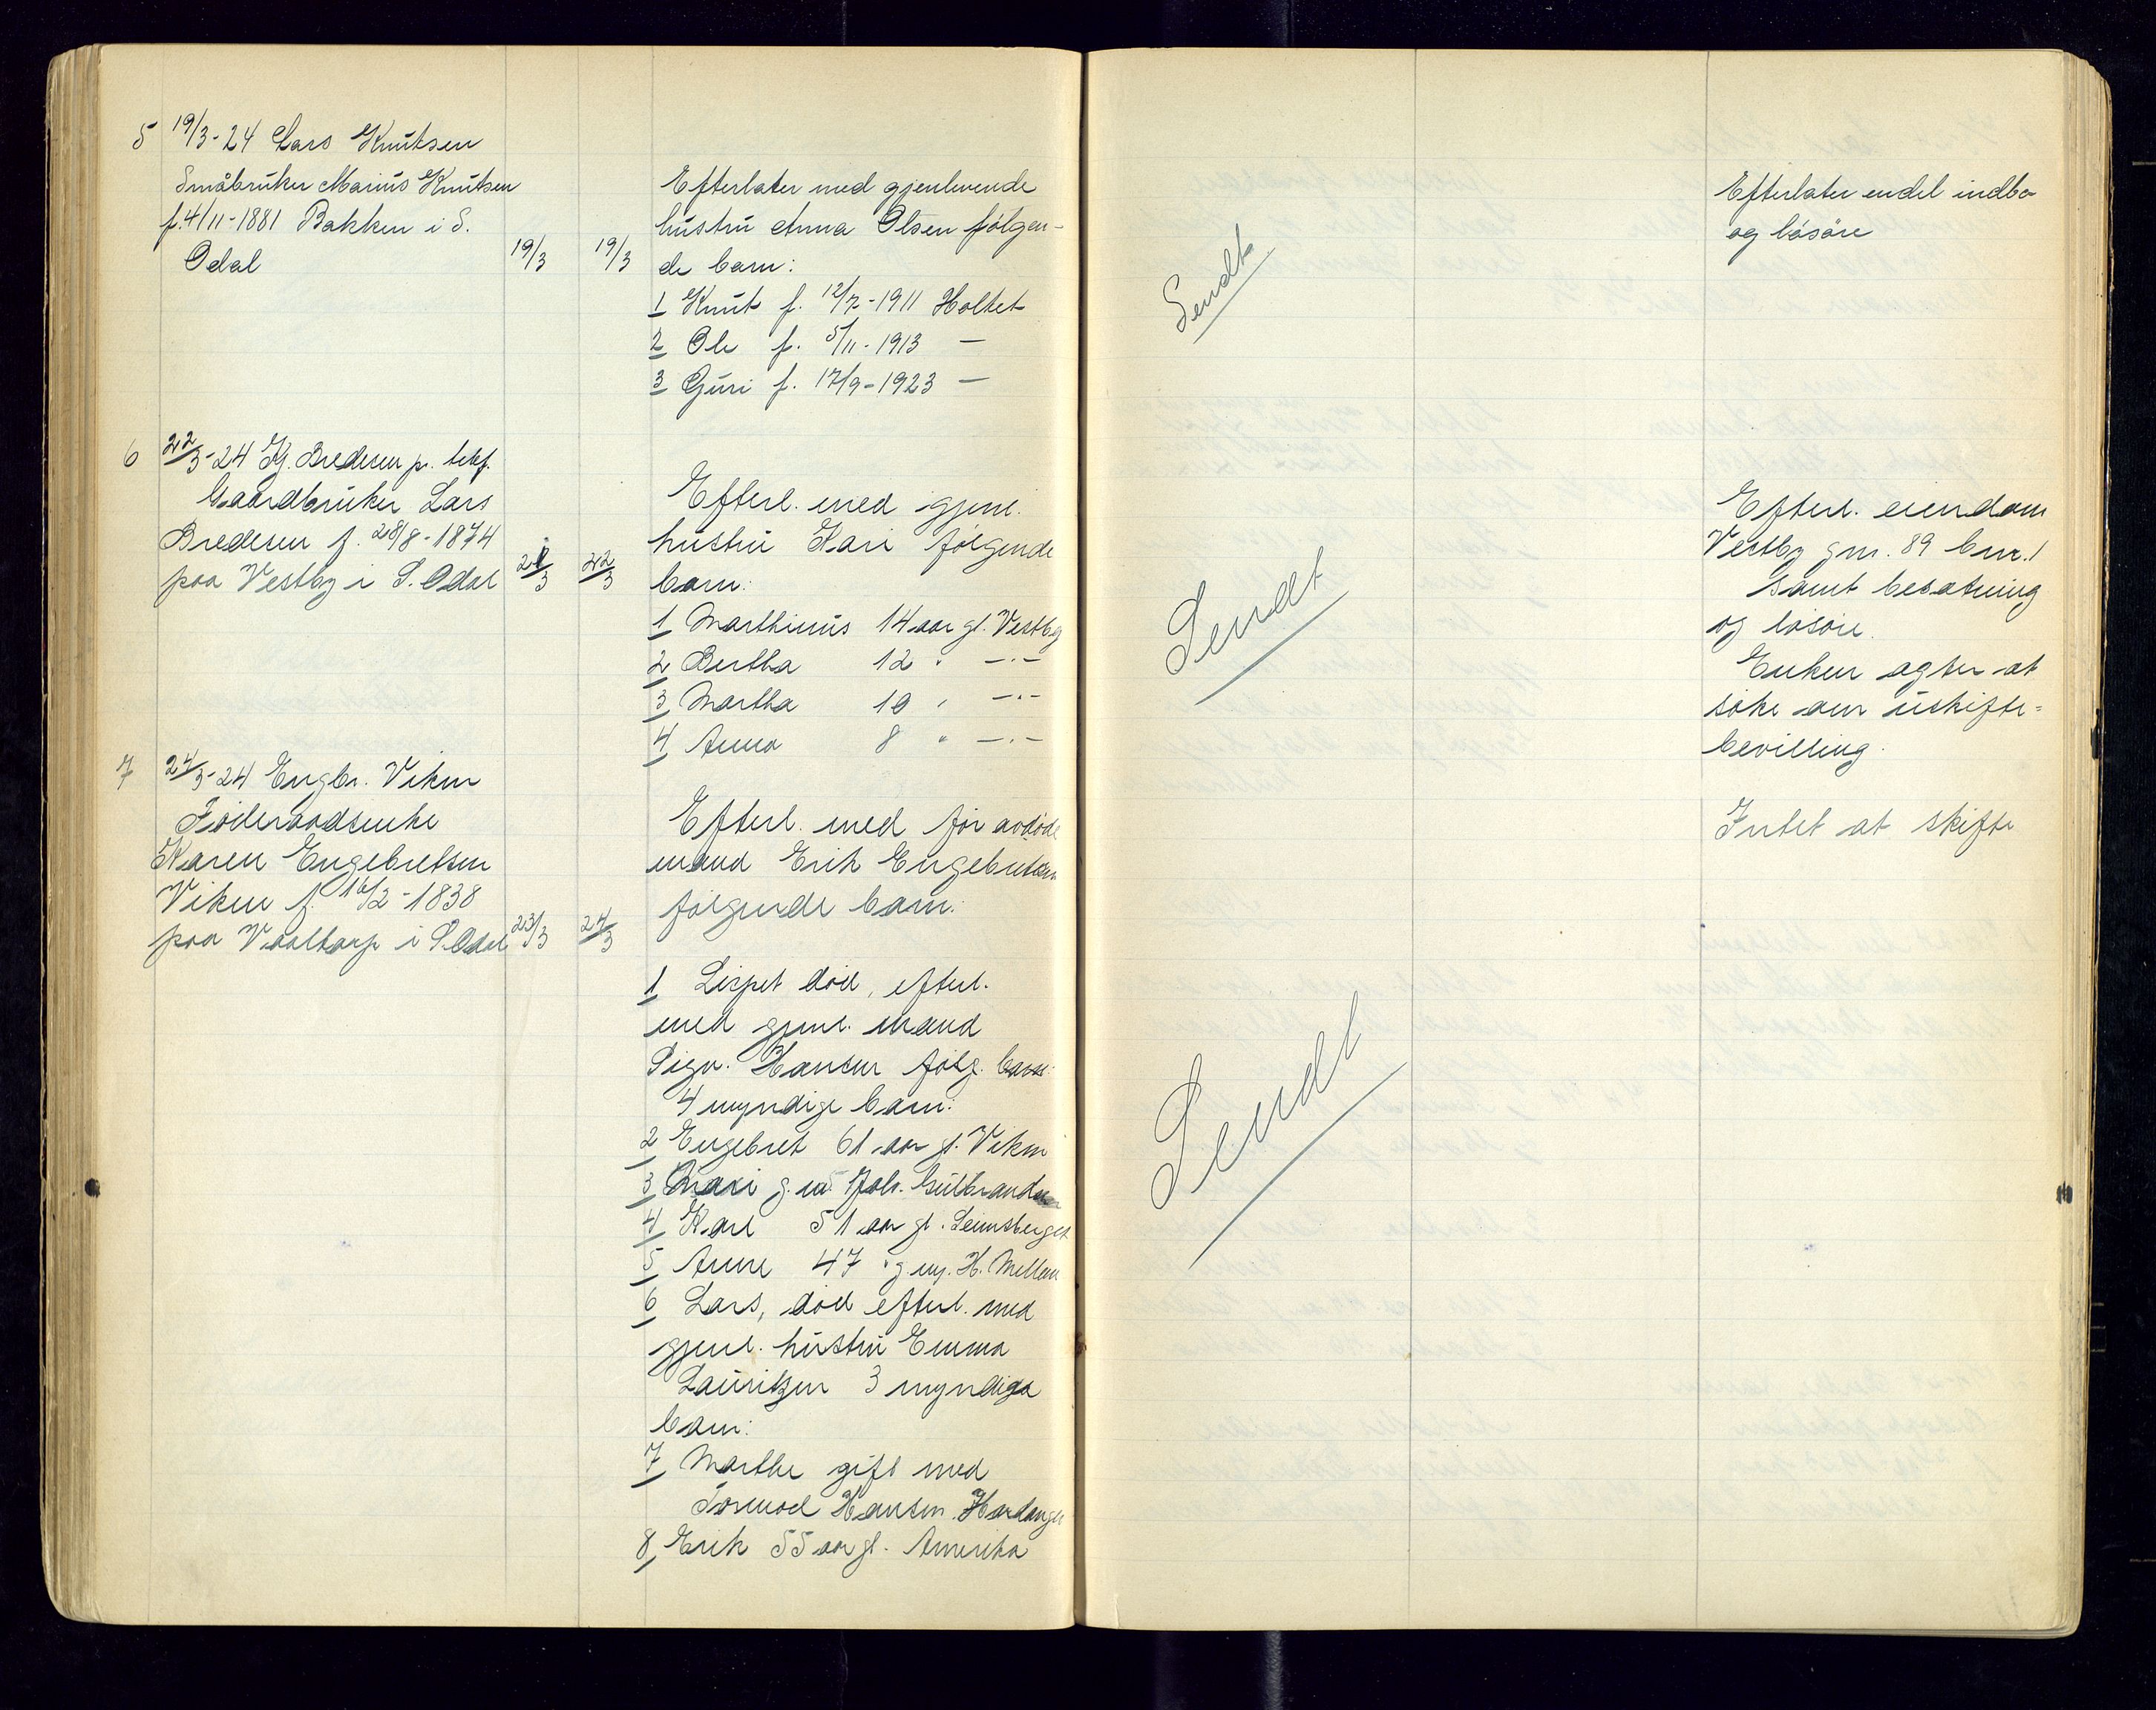 5 19/3-24 Lars Knutsen
Småbruker Marius Knutsen
f. 4/11-1881 Bakken i S.
Odal 19/3 19/3
Efterlater med gjenlevende
hustru Anna Olsen følgen-
de barn:
1 Knut f. 12/7-1911 Holtet
2 Ole f. 5/11-1913 —
3 Guri f. 17/9-1923 —
Sendt
Efterlater endel indbo
og løsøre
6 22/3-24 Kj. Bredesen pr. telef.
Gaardbruker Lars
Bredesen f. 28/8-1874
paa Vestby i S. Odal 21/3 22/3
Efterl. med gjenl.
hustru Kari følgende
barn:
1 Marthinus 14 aar gl. Vestby
2 Bertha 12 " —"—
3 Martha 10 " —"—
4 Anna 8 " —"—
Sendt
Efterl. eiendom
Vestby gnr. 89 bnr. 1
samt besætning
og løsøre.
Enken agter at
søke om uskifte=
bevilling.
7 24/3-24 Engbr. Viken
Føderaadsenke
Karen Engebretsen
Viken f. 16/2-1838
paa Vaaltorp i S. Odal 23/3 24/3
Efterl. med før avdøde
mand Erik Engebretsen
følgende barn:
1 Lispet død, efterl.
med gjenl. mand
Sigv. Hansen følg. barn:
4 myndige barn:
2 Engebret 61 aar gl. Viken
3 Mari g. m. Joh. Gulbrandsen
4 Karl 51 aar gl.
5 Anne 47 " g. m. H. Mellem
6 Lars, død efterl. med
gjenl. hustru Emma
Lauritzen 3 myndige
barn:
7 Marthe gift med
Tormod Hansen. Hardanger
8 Erik 55 aar gl. Amerika
Sendt
Intet at skifte